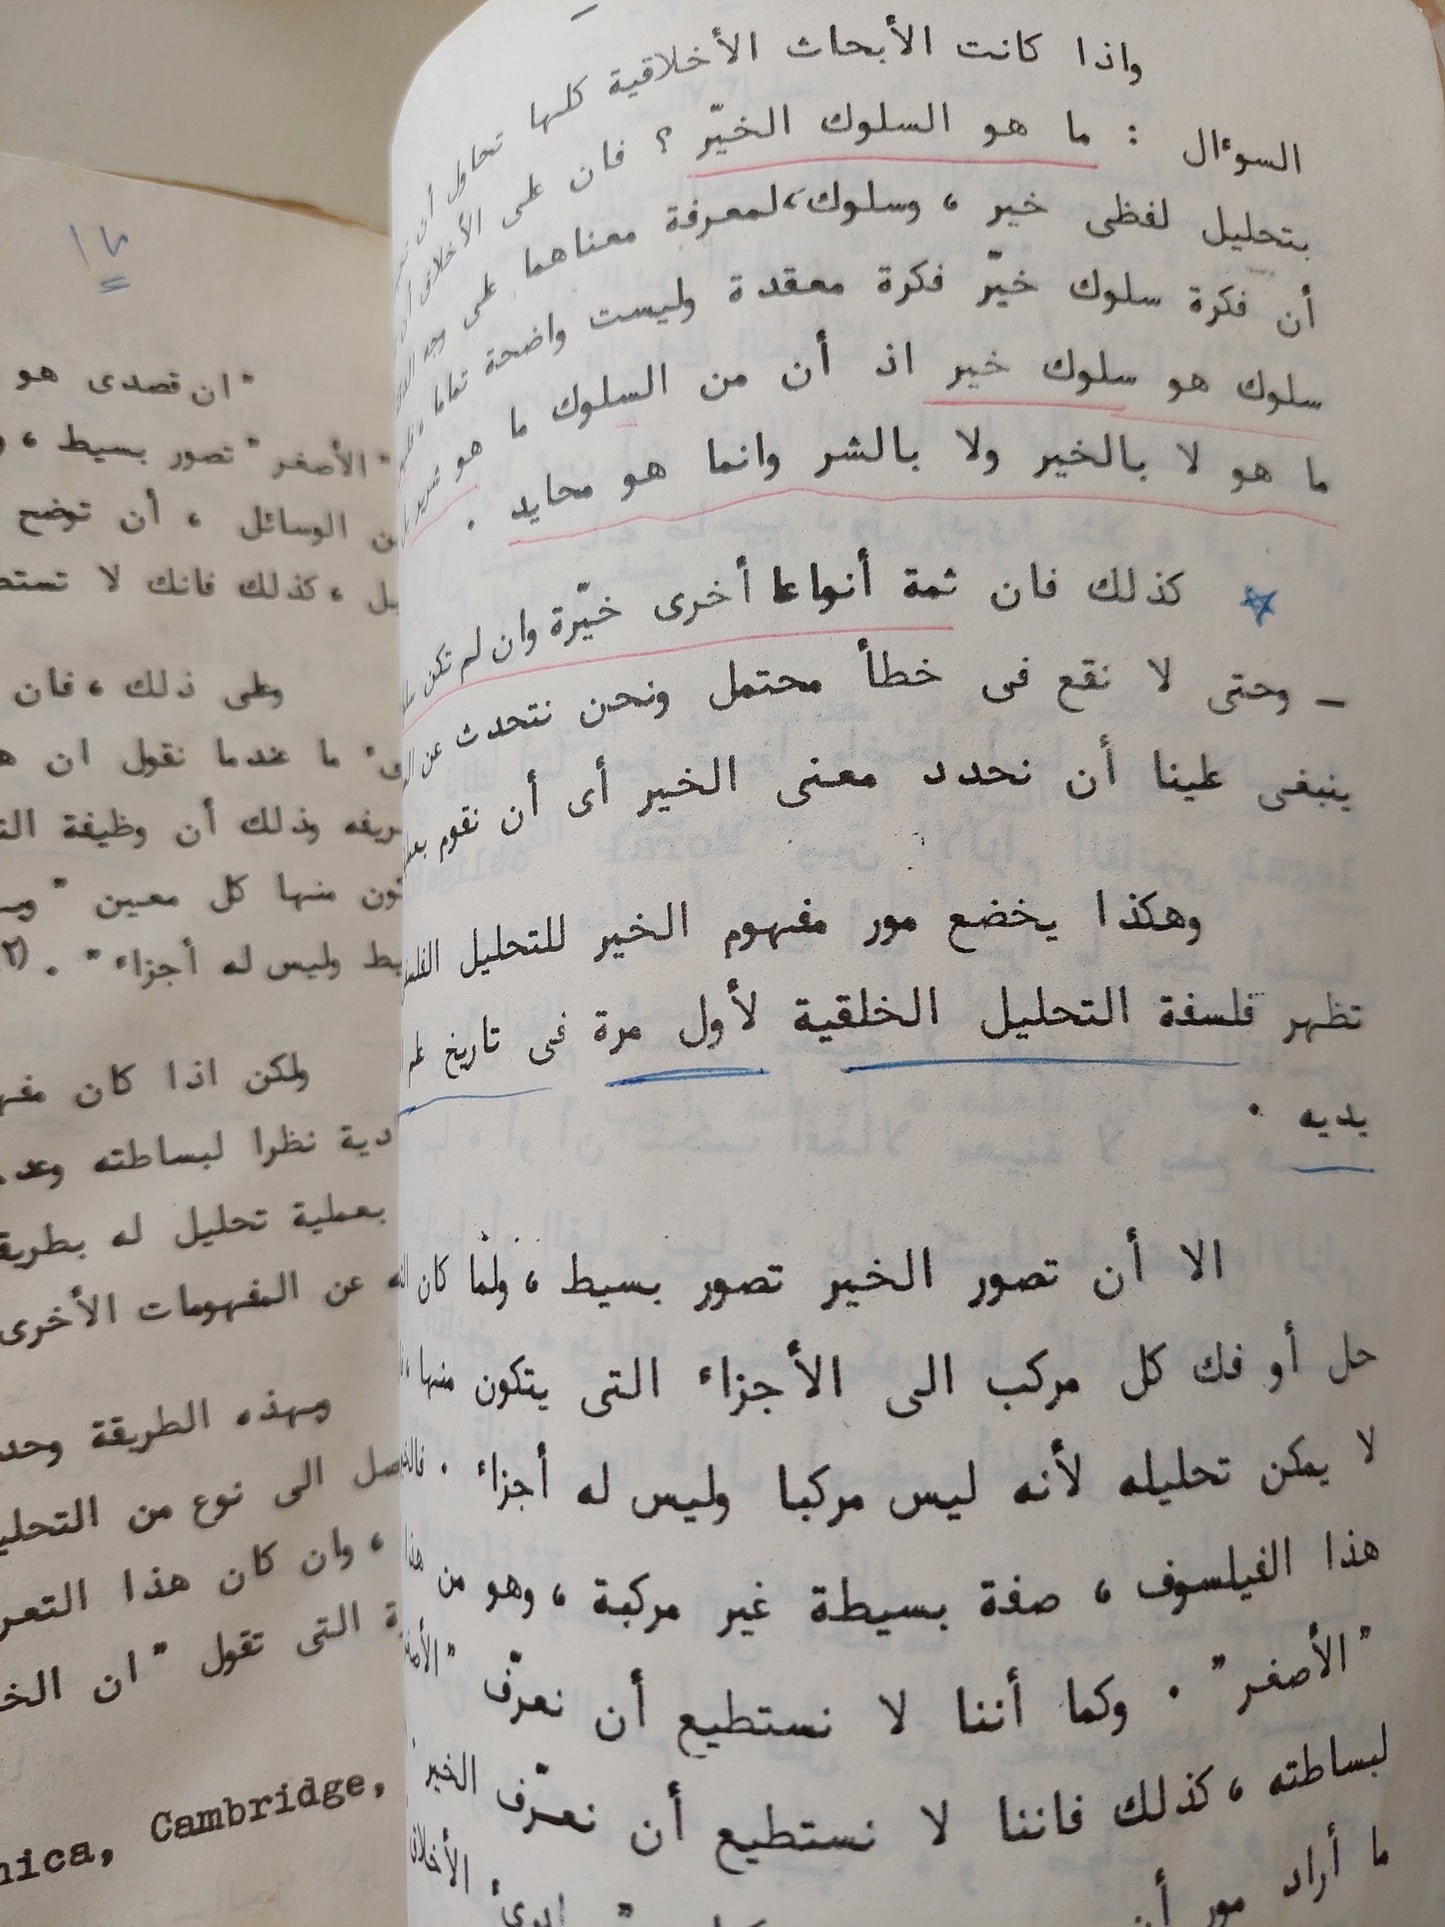 واذا كانت الأبحاث الأخلاقية كلها تحاول أن
السوءال : ما هو السلوك الخيّر ؟ فان على الأخلاق أن
بتحليل لفظى خير ، وسلوك، لمعرفة معناهما على وجه
أن فكرة سلوك خيّر فكرة معقدة وليست واضحة تماما ،
سلوك هو سلوك خير اذ أن من السلوك ما هو شرير
ما هو لا بالخير ولا بالشر وانما هو محايد .
كذلك فان ثمة أنواعا أخرى خيّرة وان لم تكن
– وحتى لا نقع فى خطأ محتمل ونحن نتحدث عن
ينبغى علينا أن نحدد معنى الخير أى أن نقوم
وهكذا يخضع مور مفهوم الخير للتحليل
تظهر فلسفة التحليل الخلقية لأول مرة فى تاريخ علم
يديه .
الا أن تصور الخير تصور بسيط ، ولمّا كان
حل أو فك كل مركب الى الأجزاء التى يتكون منها ،
لا يمكن تحليله لأنه ليس مركبا وليس له أجزاء .
هذا الفيلسوف ، صفة بسيطة غير مركبة ، وهو من هذا
"الأصفر" . وكما أننا لا نستطيع أن نعرّف
لبساطته ، كذلك فاننا لا نستطيع أن نعرّف الخير
ما أراد مور أن
١٢
"ان قصدى هو
"الأصفر" تصور بسيط ،
الوسائل ، أن توضح
، كذلك فانك لا
وعلى ذلك ، فان
ما عندما نقول ان
وذلك أن وظيفة
منها كل معين
وليس له أجزاء" . (٢
ولكن اذا كان
نظرا لبساطته
بعملية تحليل له
عن المفهومات الأخرى
وبهذه الطريقة
الى نوع من
، وان كان هذا
التى تقول "ان
Cambridge,